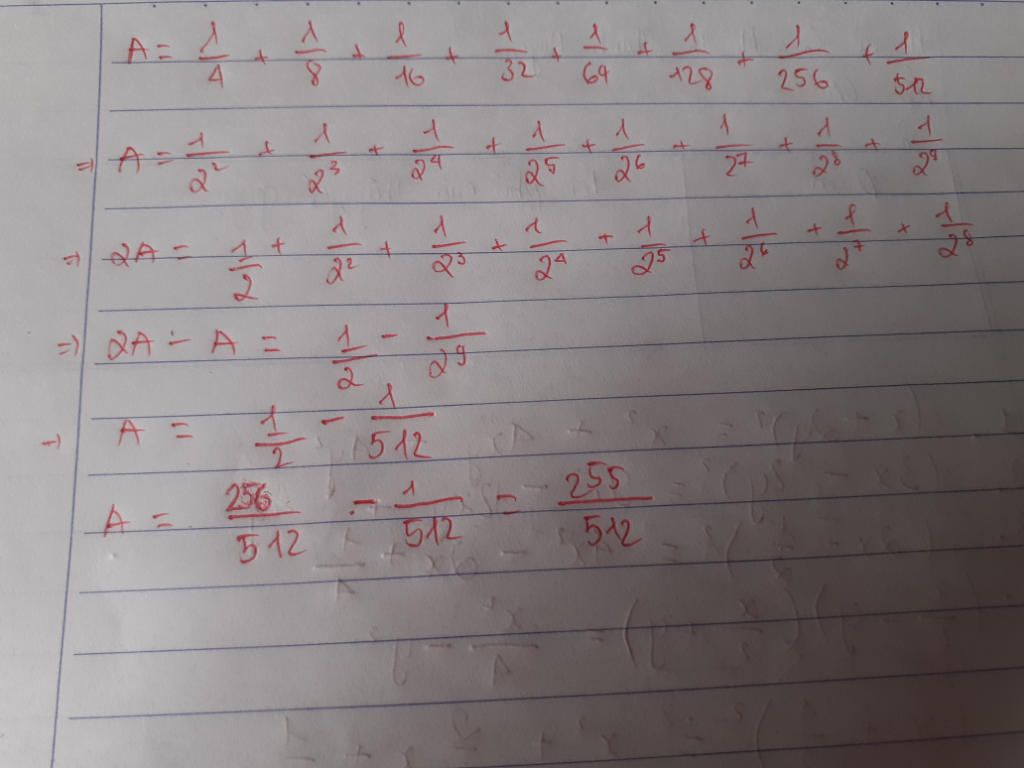 A = 1/4 + 1/8 + 1/16 + 1/32 + 1/64 + 1/128 + 1/256 + 1/512
=> A = 1/2² + 1/2³ + 1/2⁴ + 1/2⁵ + 1/2⁶ + 1/2⁷ + 1/2⁸ + 1/2⁹
=> 2A = 1/2 + 1/2² + 1/2³ + 1/2⁴ + 1/2⁵ + 1/2⁶ + 1/2⁷ + 1/2⁸
=> 2A - A = 1/2 - 1/2⁹
=> A = 1/2 - 1/512
A = 256/512 - 1/512 = 255/512